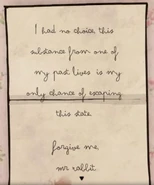 I had no choice this
substance from one of
my past lives is my
only chance of escaping
this state.
forgive me,
mr rabbit.